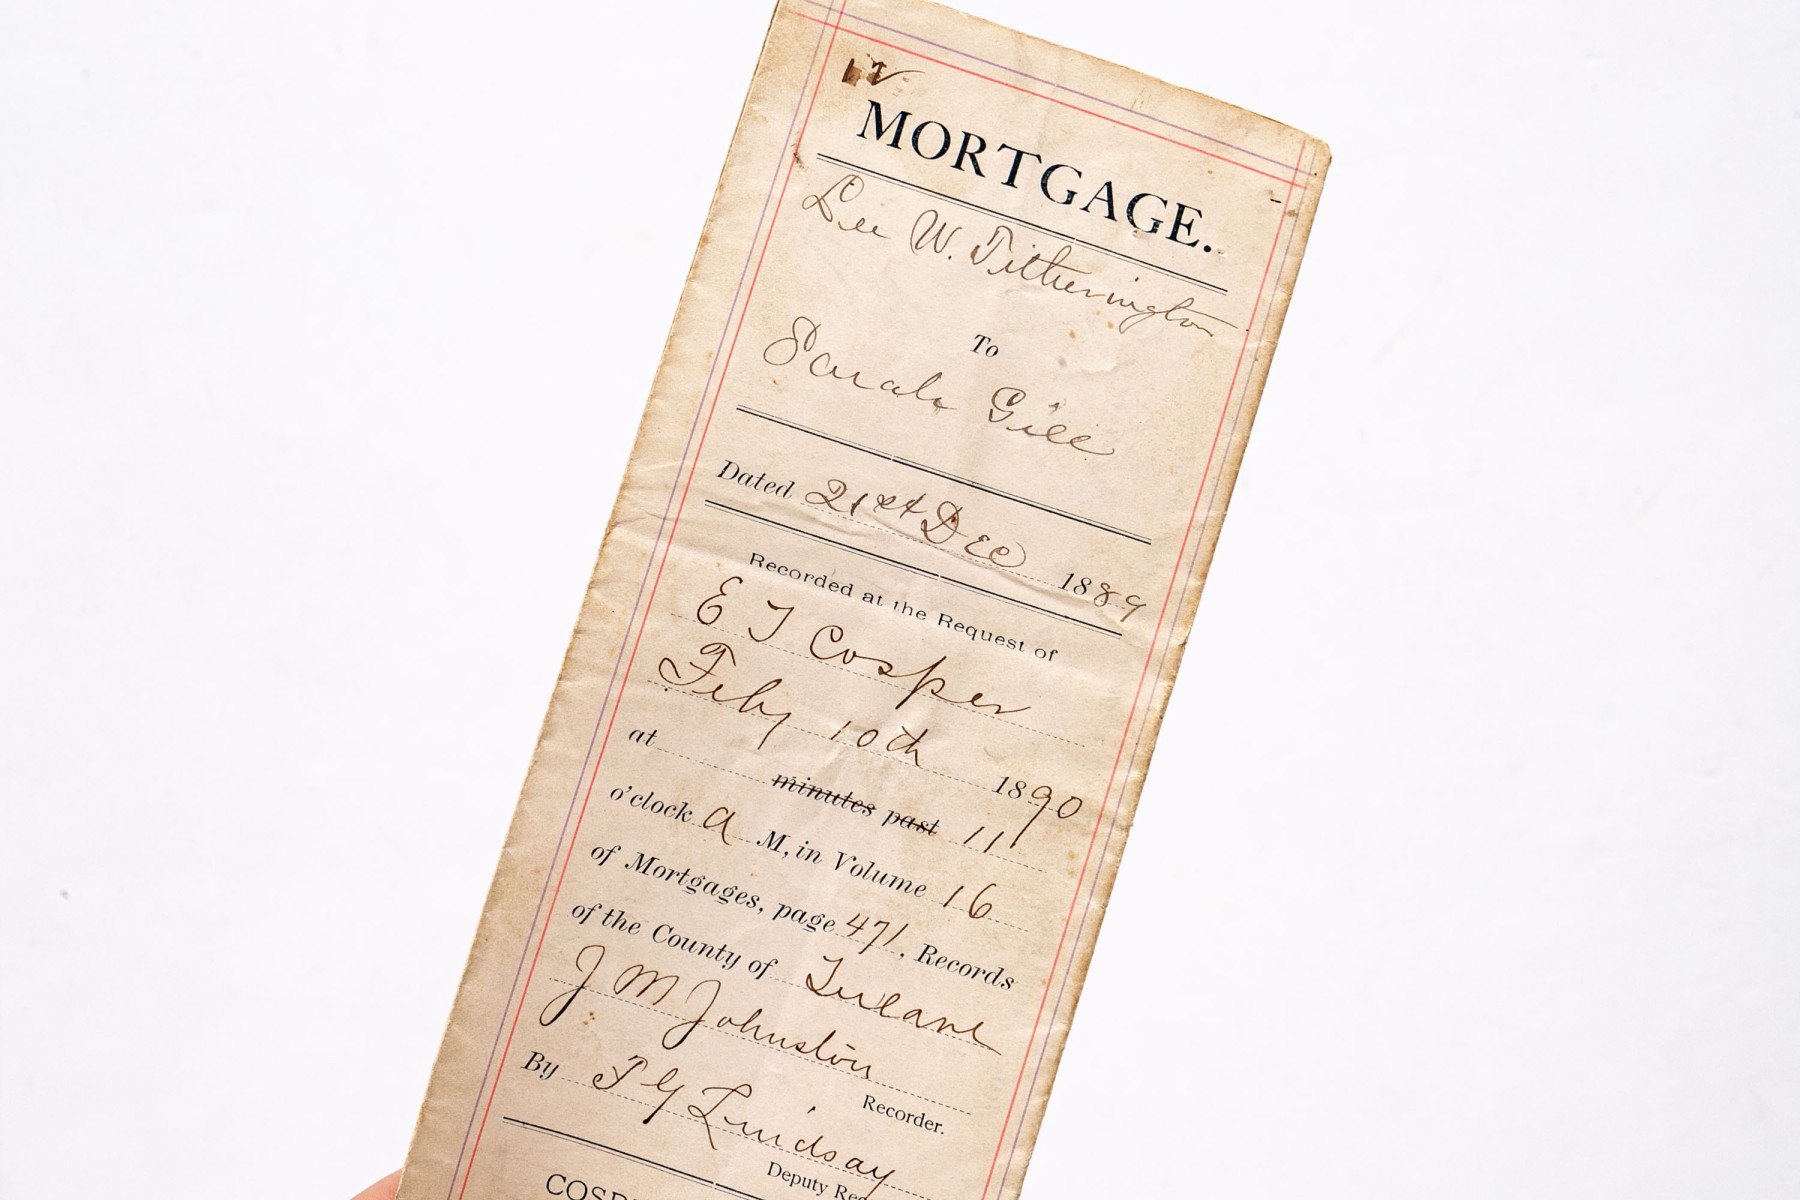 MORTGAGE.
Lee W. Titherington
To
Sarah Gill
Dated 21st Dec 1889
Recorded at the Request of
E T Cosper
Feby 10th 1890
at minutes past 11
o'clock a M, in Volume 16
of Mortgages, page 471, Records
of the County of Tulare
J M Johnston
Recorder.
By T Y Lindsay
Deputy Rec
COSP